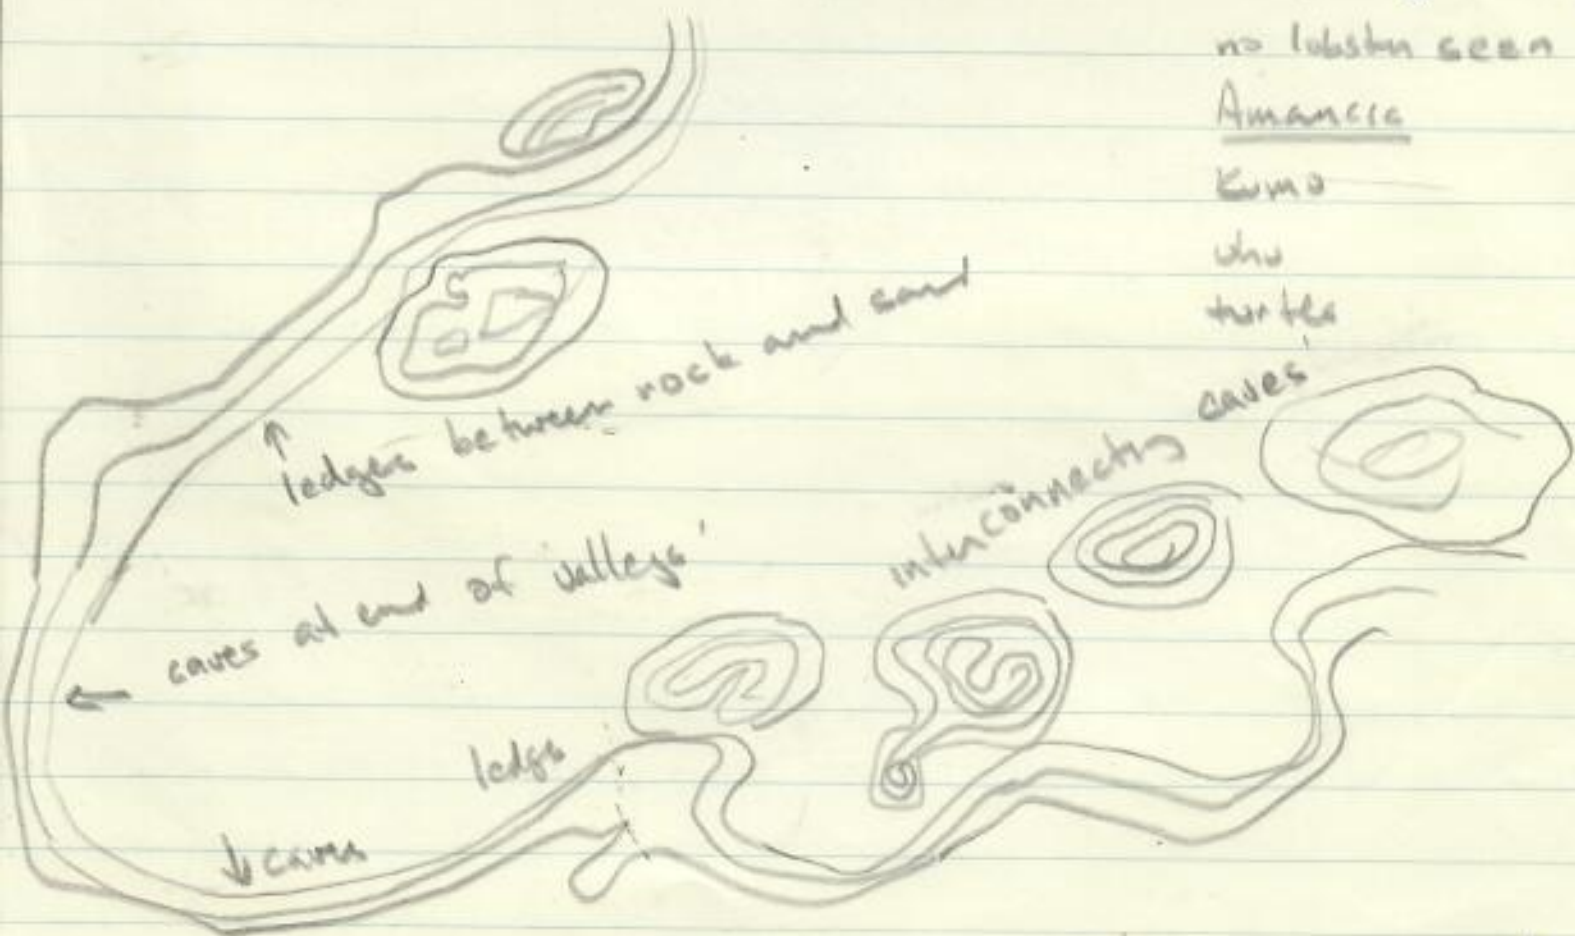 no lobster seen
Kumu
uhu
turtle
ledges between rock and sand
interconnectg caves'
caves at end of 'valleys'
ledge
caves